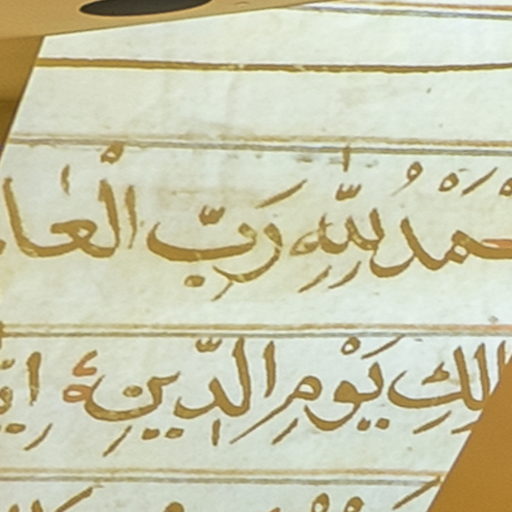 حَمْدُ لِلّٰهِ رَبِّ الْعٰا
الِكِ يَوْمِ الدِّينِ اِيَّ